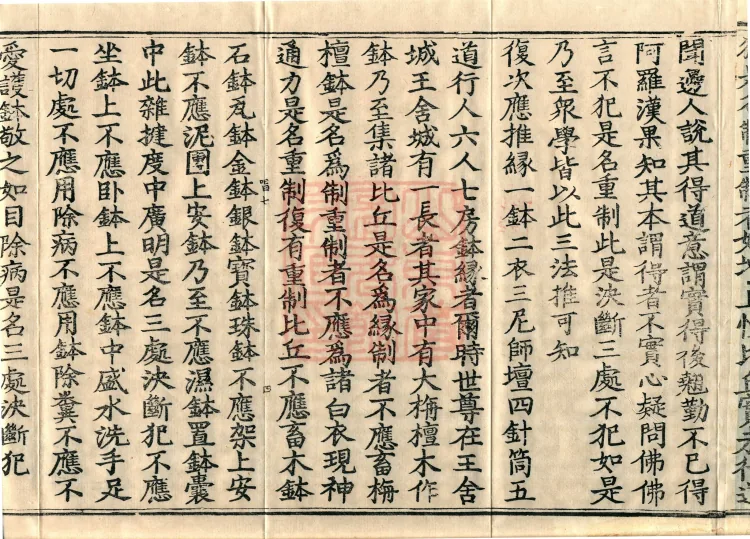 聞邊人說其得道意謂實得後勤不已得
阿羅漢果知其本謂得者不實心疑問佛佛
言不犯是名重制此是決斷三處不犯如是
乃至眾學皆以此三法推可知
復次應推緣一鉢二衣三尼師壇四針筒五
道行人六人七房鉢緣者爾時世尊在王舍
城王舍城有一長者其家中有大栴檀木作
鉢乃至集諸比丘是名為緣制者不應畜栴
檀鉢是名為制重制者不應為諸白衣現神
通力是名重制復有重制比丘不應畜木鉢
石鉢瓦鉢金鉢銀鉢寶鉢珠鉢不應架上安
鉢不應泥團上安鉢乃至不應濕鉢置鉢囊
中此雜揵度中廣明是名三處決斷犯不應
坐鉢上不應臥鉢上不應鉢中盛水洗手足
一切處不應用除病不應用鉢除糞不應不
愛護鉢敬之如目除病是名三處決斷犯